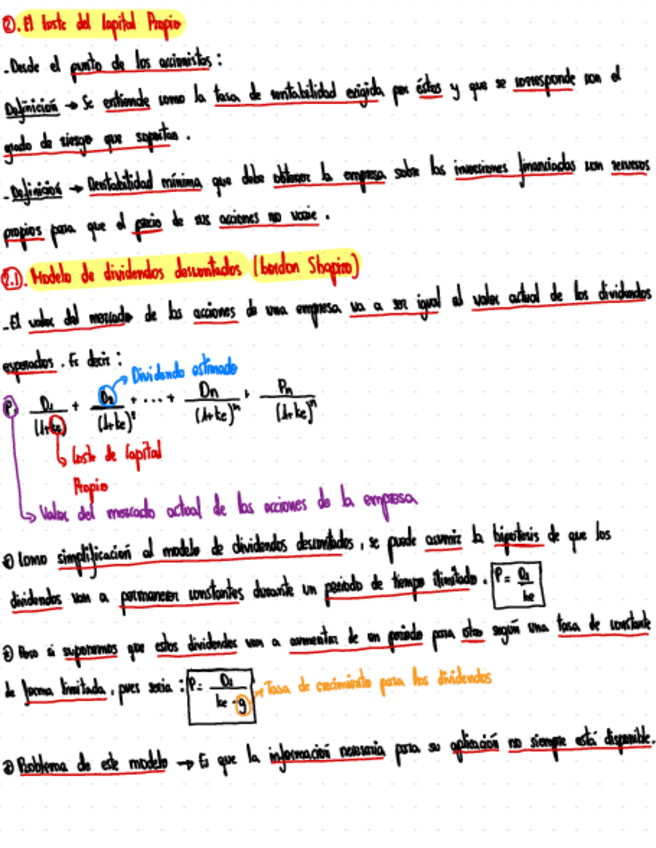 ②. El coste del Capital Propio
- Desde el punto de los accionistas:
Definición → Se entiende como la tasa de rentabilidad exigida por éstos y que se corresponde con el
grado de riesgo que soportan.
- Definición → Rentabilidad mínima que debe obtener la empresa sobre las inversiones financiadas con recursos
propios para que el precio de sus acciones no varie.
2.1). Modelo de dividendos descontados (Gordon Shapiro)
- El valor del mercado de las acciones de una empresa va a ser igual al valor actual de los dividendos
esperados. Es decir:
Dividendo estimado
P= D₁/(1+ke) + D₂/(1+ke)² + ... + Dn/(1+ke)ⁿ + Pn/(1+ke)ⁿ
Coste de Capital
Propio
Valor del mercado actual de las acciones de la empresa
Como simplificación al modelo de dividendos descontados, se puede asumir la hipótesis de que los
dividendos van a permanecer constantes durante un periodo de tiempo ilimitado. P = D₁/ke
Pero si suponemos que estos dividendos van a aumentar de un periodo para otro según una tasa de constante
de forma limitada, pues seria: P = D₁/(ke - g) Tasa de crecimiento para los dividendos
Problema de este modelo → Es que la información necesaria para su aplicación no siempre está disponible.